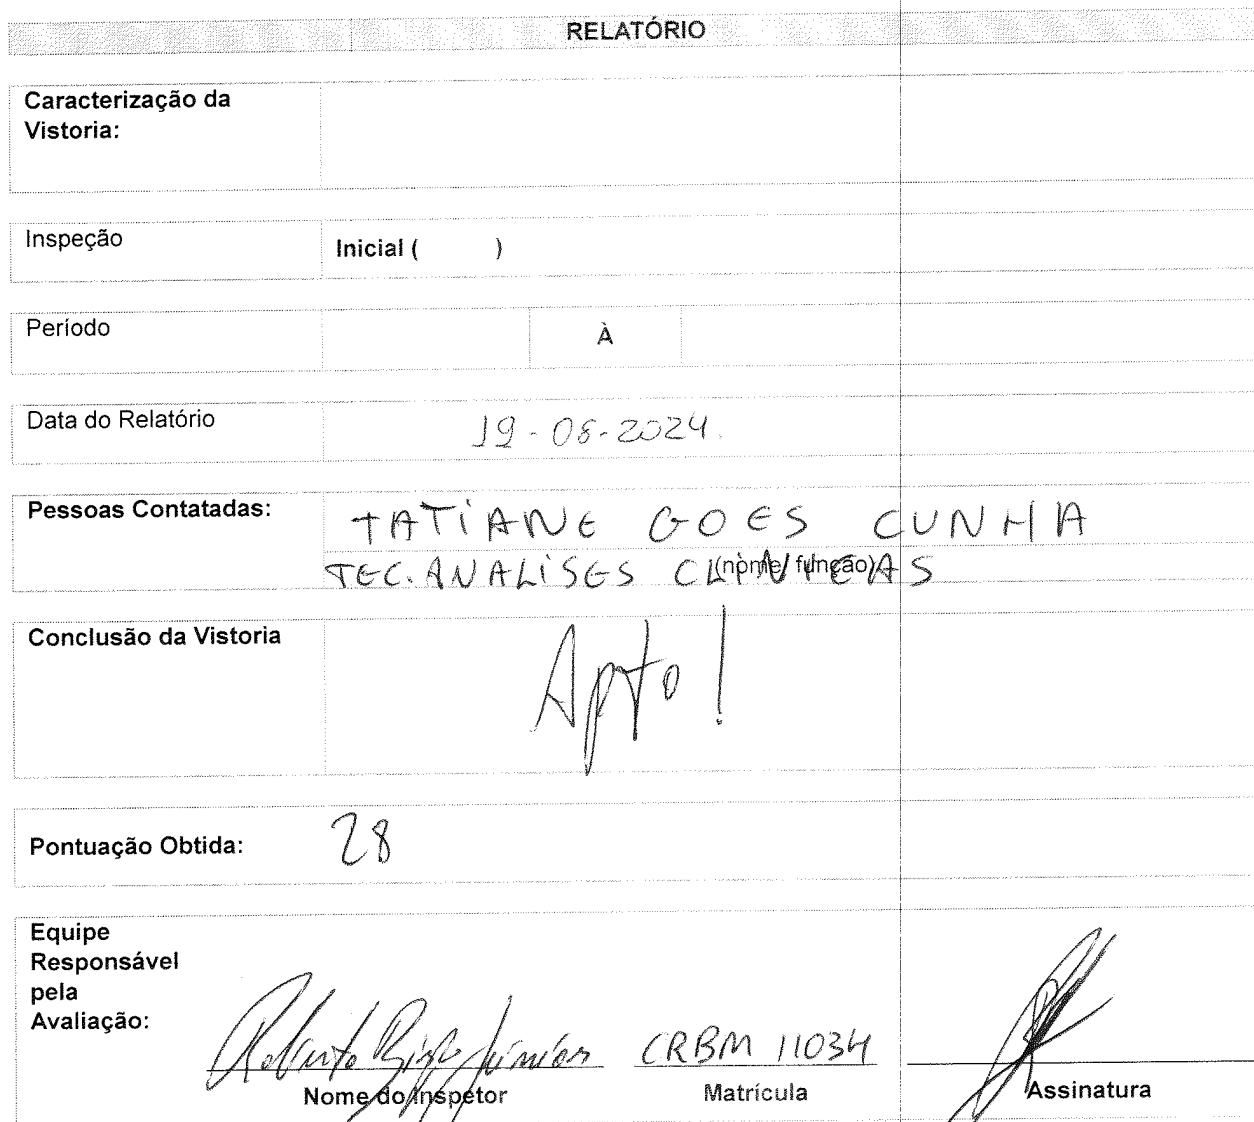 RELATÓRIO
Caracterização da
Vistoria:
Inspeção
Inicial ( )
Período
À
Data do Relatório
19-08-2024.
Pessoas Contatadas:
TATIANE GOES CUNHA
(nome/ função)
TEC. ANALISES CLINICAS
Conclusão da Vistoria
Apto!
Pontuação Obtida:
28
Equipe
Responsável
pela
Avaliação:
Roberto Júnior CRBM 11034
Nome do Inspetor
Matrícula
Assinatura